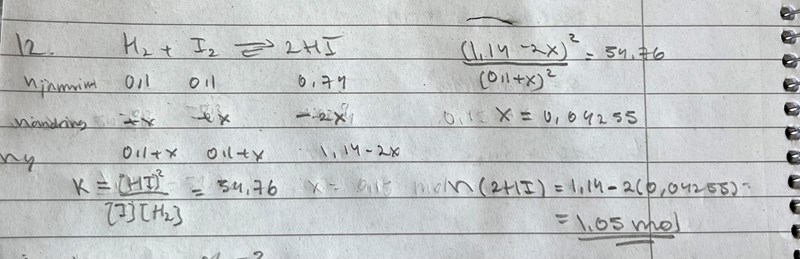 12. H₂ + I₂ ⇌ 2HI
(1,14 - 2x)² / (0,1+x)² = 54,76
njämvikt 0,1 0,1 0,74
nändring +x +x -2x
x = 0,04255
ny 0,1+x 0,1+x 1,14-2x
K = [HI]² / [I][H₂] = 54,76
n(2HI) = 1,14 - 2(0,04255) =
= 1,05 mol